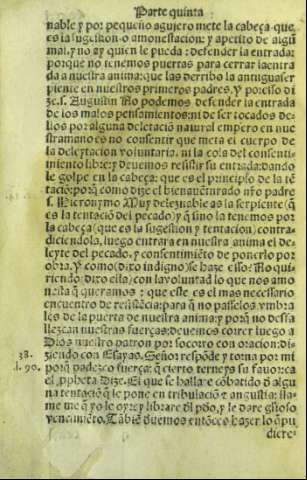 Parte quinta
nable y por pequeño agujero mete la cabeça que
es la sugestion o amonestacion: y apetito de algũ
mal, y no ay quien le pueda: defender la entrada:
porque no tenemos puertas para cerrar la entra
da a nuestra anima: que las derribo la antigua ser
piente en nuestros primeros padres. y por esso di
ze. s. Augustin No podemos defender la entrada
de los malos pensamientos: ni de ser tocados de
llos por alguna deletació natural empero en nue
stra mano es no consentir que meta el cuerpo de
la delectacion voluntaria. ni la cola del consenti
miento libre: y devemos resistir su entrada: dando
le golpe en la cabeça: que es el principio de la tẽ
tació: porq̃ como dize el bienauẽturado nr̃o padre
s. Hieronymo Muy deleznable es la serpiente (q̃
es la tentació del pecado) y q̃ sino la tenemos por
la cabeça (que es la sugestion y tentacion) contra
diciendola, luego entrara en nuestra anima el de
leyte del pecado. y consentimiẽto de ponerlo por
obra. Y como (dixo indigno) se haze esso? No qui
riendo: dixo ella) con la voluntad lo que nos amo
nesta q̃ queramos: que este es el mas necessario
encuentro de resistẽcia: para q̃ no passe los vmbra
les de la puerta de nuestra anima: y porq̃ no desfa
llezcan nuestras fuerças: deuemos correr luego a
Dios nuestro patron por socorro con oracion: di
38. ziendo con Esayas. Señor respõde y torna por mi
porq̃ padezco fuerça: q̃ cierto terneys su fauor: ca
d. 90. el ppheta Dize. El que se halla cõbatido d̃ algu
na tentació q̃ le pone en tribulació z angustia: lla
me me q̃ yo le oyre y librare dl pdo, y le dare glorioso
vencimiẽto. Tãbiẽ duemos entõces hazer lo q̃ pu
diere: